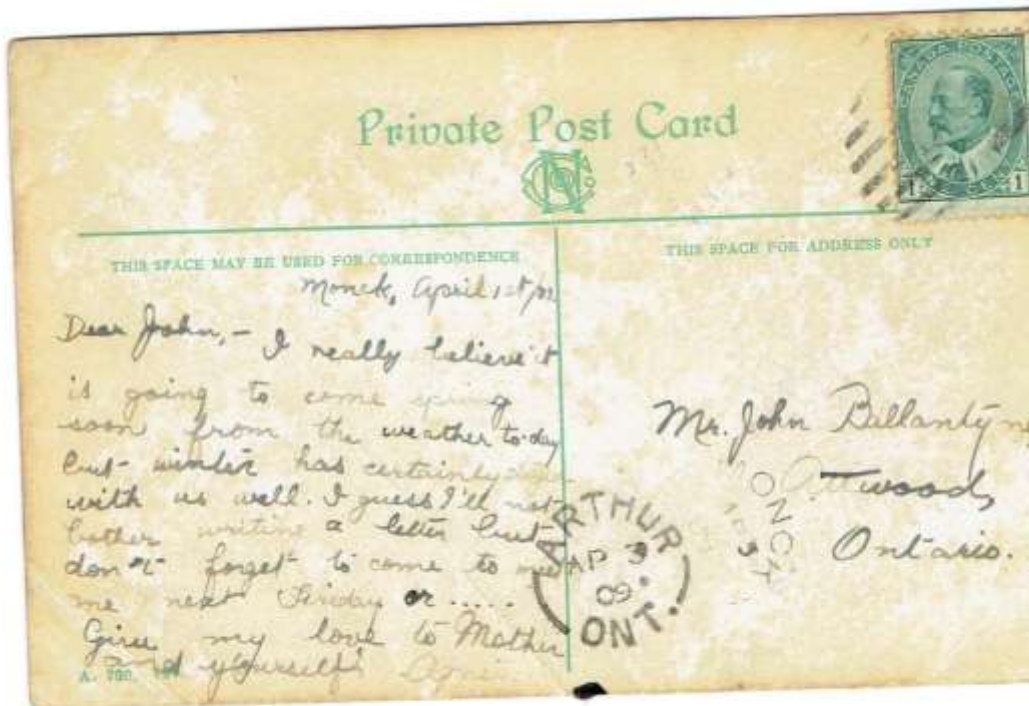 Private Post Card
CANADA POSTAGE
1 1
THIS SPACE MAY BE USED FOR CORRESPONDENCE
THIS SPACE FOR ADDRESS ONLY
Monck, April 1st/09
Dear John, - I really believe it
is going to come spring
soon from the weather to-day
but winter has certainly
with us well. I guess I'll not
bother writing a letter but
don't forget to come to meet
me next Friday or .....
Give my love to Mother
and yourself.
Mr. John Ballantyn
Attwood,
Ontario.
ARTHUR
AP 3
09
ONT.